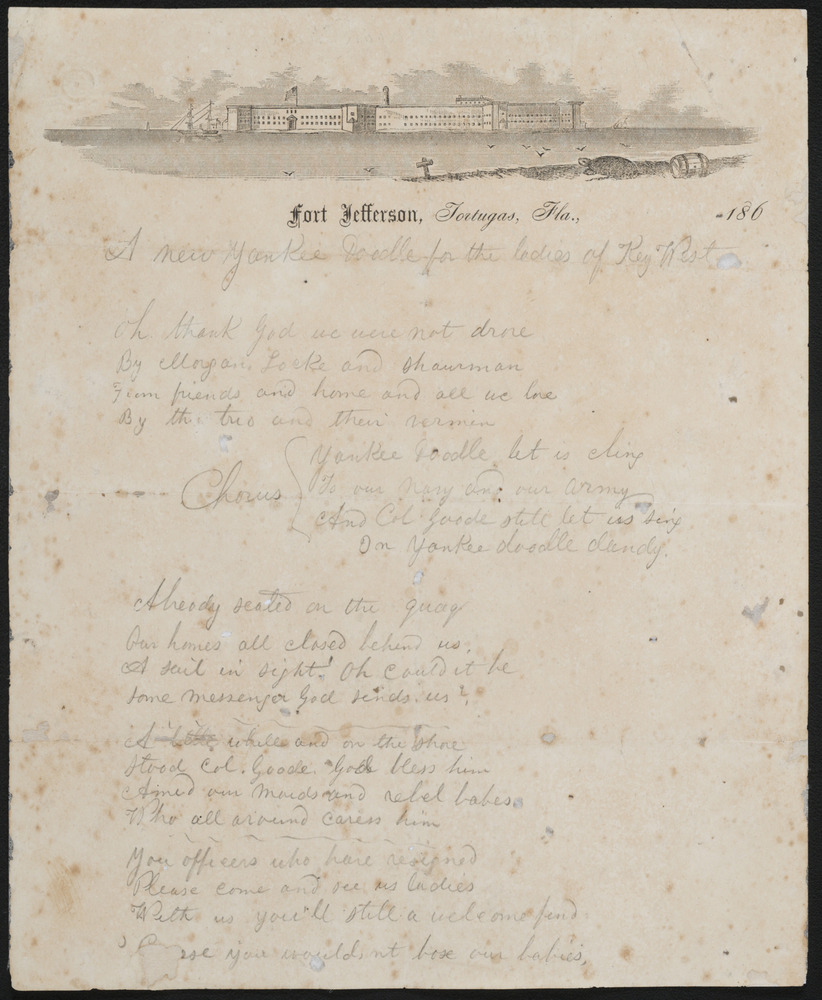 Fort Jefferson, Tortugas, Fla., 186
A new Yankee Doodle for the ladies of Key West
Oh thank God we were not drove
By Morgan, Locke and Shawman
From friends and home and all we love
By the trio and their vermin
Yankee Doodle let us cling
Chorus
To our Navy and our Army
And Col Goode still let us sing
On Yankee doodle dandy.
Already seated on the quay
Our homes all closed behind us.
A sail in sight! Oh could it be
Some messenger God sends us?
A little while and on the shore
Stood Col. Goode. God bless him
Amid our maids and rebel babes.
Who all around caress him
You officers who have resigned
Please come and see us ladies
With us you'll still a welcome find
you wouldn't box our babies.